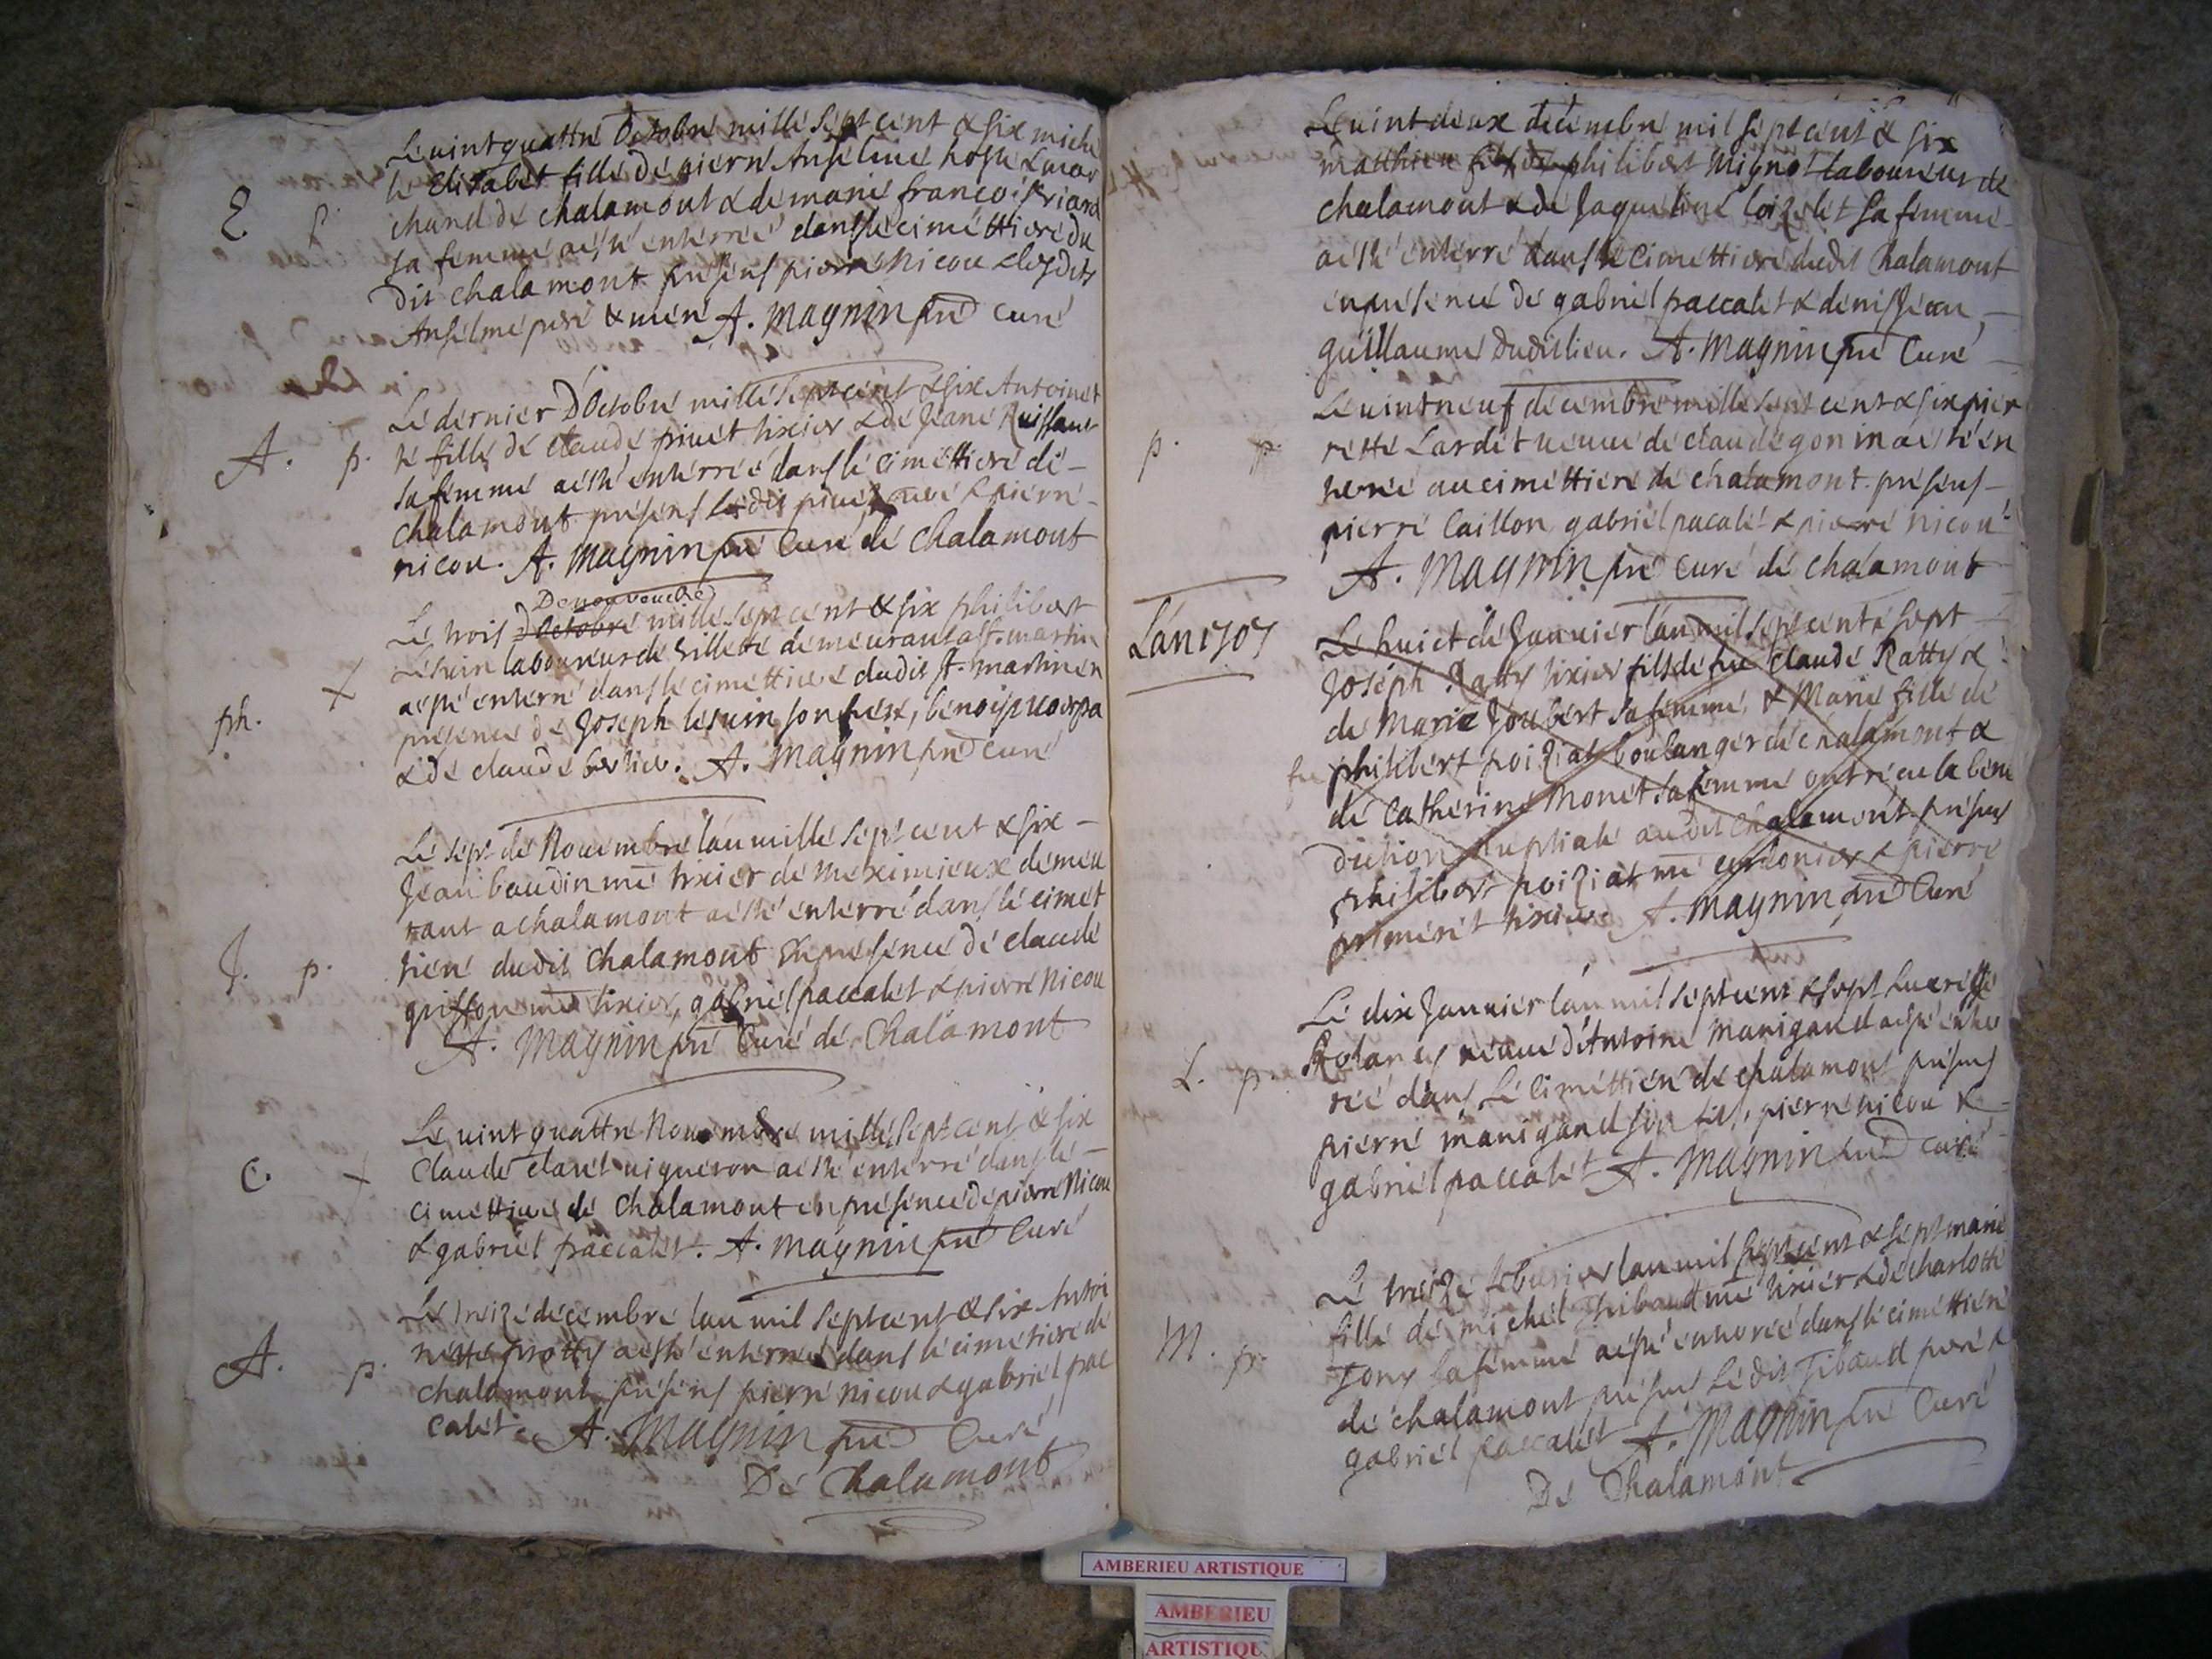 Le vint quattre Octobre mille sept cent & six miche
le Elisabet fille de pierre Anselme hoste & mar
chand de chalamont & de marie francois Riand
E. p. sa femme a esté enterreé dans le cimettiere du
dit chalamont presens pierre Nicou & lesdits
Anselme pere & mere A. Magnin pre Curé
Le dernier D'Octobre mille sept cent & six Antoinet
A. p. te fille de claude pivet tixier & de Jeane
sa femme a esté enterreé dans le cimettiere de
chalamont presens ledit pivet pere & pierre
nicou. A. Magnin pre Curé de Chalamont
De nouvembre
Le trois D'Octobre mille sept cent & six philibert
laboureur de Villette demeurant a st. martin
+ a esté enterré dans le cimettiere dudit st. martin en
ph. presence de Joseph son frere, benoist
& de claude berlie. A. Magnin pre Curé
Le sept de Nouembre l'an mille sept cent & six
Jean baudin me tixier de Meximieux demeu
rant a chalamont a esté enterré dans le cimet
J. p. tiere dudit Chalamont en presence de claude
griffon me tixier, gabriel paccalet & pierre Nicou
A. Magnin pre Curé de Chalamont
Le vint quattre Nouembre mille sept cent & six
C. + Claude claret vigneron a esté enterré dans le
cimettiere de Chalamont en presence de pierre Nicou
& gabriel paccalet. A. Magnin pre Curé
Le treize decembre l'an mil sept cent & six Antoi
A. p. nette a esté enterreé dans le cimetiere de
chalamont presens pierre nicou & gabriel pac
calet. A. Magnin pre Curé
De Chalamont
Le vint deux decembre mil sept cent & six
matthieu fils de philibert Mignot laboureur de
chalamont & de Jaqueline loizelet sa femme
a esté enterré dans le Cimettiere dudit Chalamont
en presence de gabriel paccalet & denis Jean
guillaume dudit lieu. A. Magnin pre Curé
Le vint neuf decembre mille sept cent & six pier
p. p. rette Lardet veuve de claude gonin a esté en
terreé au cimettiere de chalamont. presens
pierre Caillon gabriel pacalet & pierre nicou
A. Magnin pre Curé de chalamont
L'an 1707
Le huict de Januier l'an mil sept cent & sept
Joseph Ratty tixier fils de feu Claude Ratty &
de Marie Joubert sa femme, & Marie fille de
feu philibert poiziat boulanger de chalamont &
de Catherine Monet sa femme ont reçu la bene
diction nuptiale audit Chalamont presens
philibert poiziat me cordonier & pierre
primeret tixier. A. Magnin pre Curé
Le dix Januier l'an mil sept cent & sept Lucresse
veuve d'Antoine Manigand a esté enter
L. p. reé dans Le cimettiere de chalamont presens
pierre manigand son fils, pierre nicou &
gabriel paccalet A. Magnin pre Curé
Le treize feburier l'an mil sept cent & sept marie
fille de michel Thibaud me tixier & de charlotte
M. p. Jony sa femme a esté enterreé dans le cimettiere
de chalamont presens Le dit Tibaud pere &
gabriel paccalet A. Magnin pre Curé
De Chalamont
AMBERIEU ARTISTIQUE
AMBERIEU
ARTISTIQU